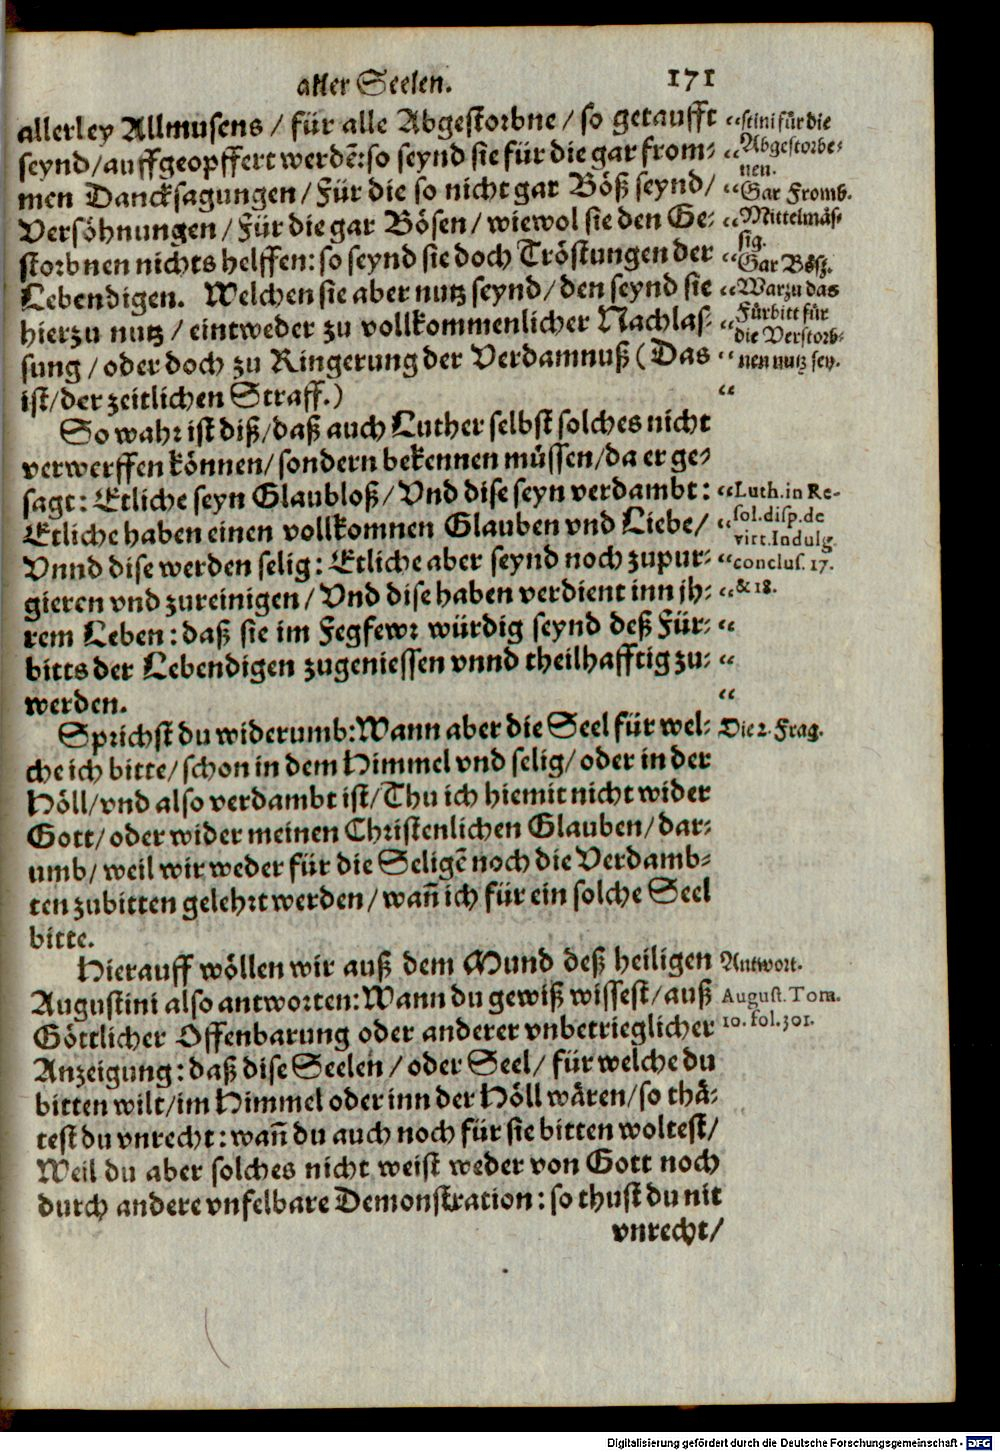 aller Seelen. 171
allerley Allmusens / für alle Abgestorbne / so getaufft
seynd/auffgeopffert werdẽ: so seynd sie für die gar from-
men Dancksagungen / Für die so nicht gar Böß seynd/
Versöhnungen / Für die gar Bösen / wiewol sie den Ge-
storbnen nichts helffen: so seynd sie doch Tröstungen der
Lebendigen. Welchen sie aber nutz seynd/ den seynd sie
hierzu nutz / eintweder zu vollkommenlicher Nachlas-
sung / oder doch zu Ringerung der Verdamnuß (Das
ist/der zeitlichen Straff.)
“stini für die
“Abgestorbe-
nen.
“Gar Fromb.
“Mittelmäs-
sig.
“Gar Bösz.
“Warzu das
“Fürbitt für
die Verstorb-
“nen nutz sey.
“
So wahr ist diß/daß auch Luther selbst solches nicht
verwerffen können/ sondern bekennen müssen/da er ge-
sagt: Etliche seyn Glaubloß/ Vnd dise seyn verdambt:
Etliche haben einen vollkomnen Glauben vnd Liebe/
Vnnd dise werden selig: Etliche aber seynd noch zupur-
gieren vnd zureinigen/ Vnd dise haben verdient inn jh-
rem Leben: daß sie im Fegfewr würdig seynd deß Für-
bitts der Lebendigen zugeniessen vnnd theilhafftig zu-
werden.
“Luth. in Re-
“sol. disp. de
virt. Indulg.
“conclus. 17.
“& 18.
“
“
“
Sprichst du widerumb: Wann aber die Seel für wel-
che ich bitte/ schon in dem Himmel vnd selig/ oder in der
Höll/ vnd also verdambt ist/ Thu ich hiemit nicht wider
Gott/ oder wider meinen Christenlichen Glauben/ dar-
umb/ weil wir weder für die Seligẽ noch die Verdamb-
ten zubitten gelehrt werden/ wañ ich für ein solche Seel
bitte.
Die 2. Frag.
Hierauff wöllen wir auß dem Mund deß heiligen
Augustini also antworten: Wann du gewiß wissest/ auß
Göttlicher Offenbarung oder anderer vnbetrieglicher
Anzeigung: daß dise Seelen / oder Seel/ für welche du
bitten wilt/im Himmel oder inn der Höll wären/ so thä-
test du vnrecht: wañ du auch noch für sie bitten woltest/
Weil du aber solches nicht weist weder von Gott noch
durch andere vnfelbare Demonstration: so thust du nit
vnrecht/
Antwort.
August. Tom.
10. fol. 301.
Digitalisierung gefördert durch die Deutsche Forschungsgemeinschaft - DFG